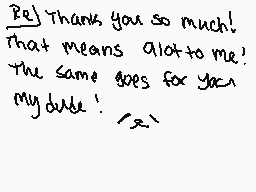 Re] Thanks you so much!
That means alot to me!
The same goes for you
my dude!